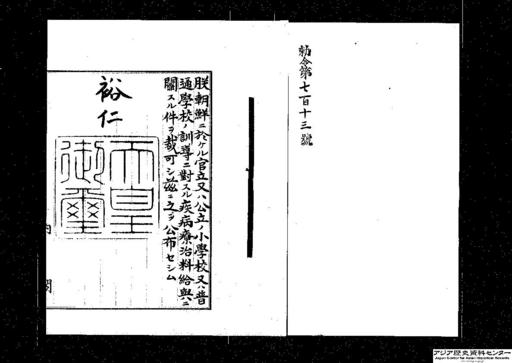 勅令第七百十三號
朕朝鮮ニ於ケル官立又ハ公立ノ小學校又ハ普
通學校ノ訓導ニ對スル疾病療治料給與ニ
關スル件ヲ裁可シ茲ニ之ヲ公布セシム
裕仁
天皇
御璽
内閣
アジア歴史資料センター
Japan Center for Asian Historical Records